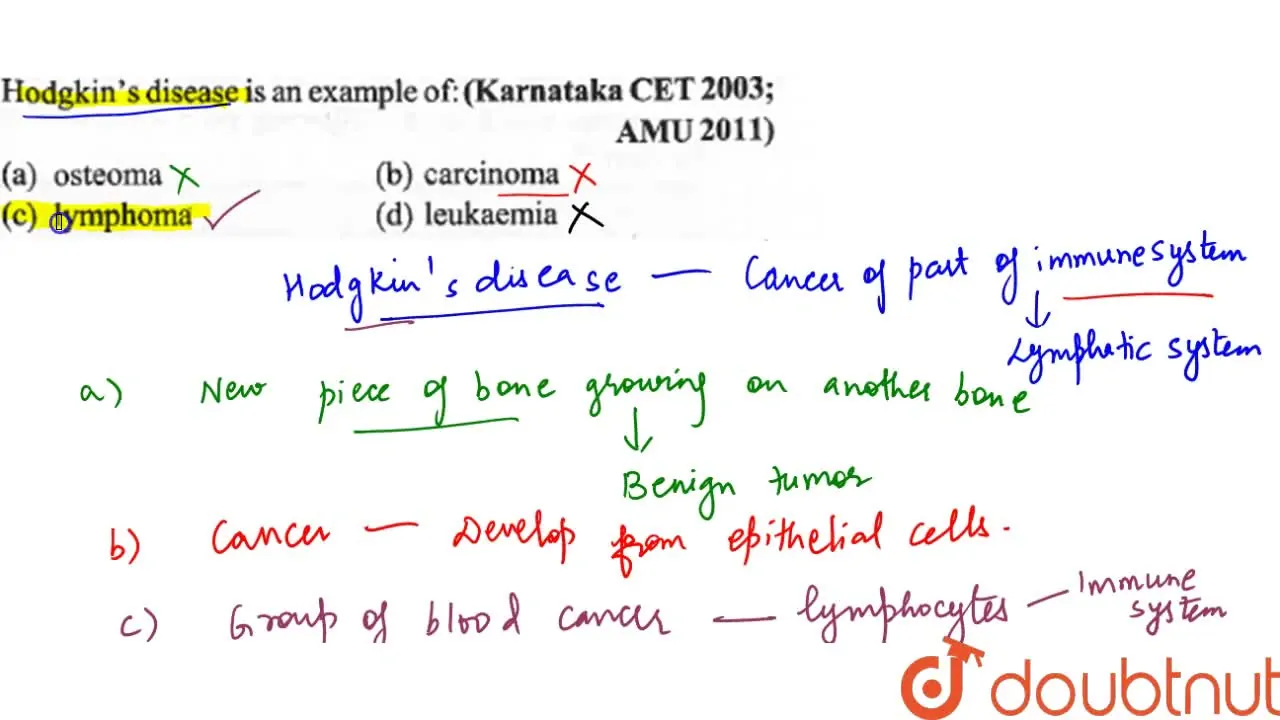 Hodgkin's disease is an example of: (Karnataka CET 2003;
AMU 2011)
(a) osteoma X (b) carcinoma X
(c) lymphoma ✓ (d) leukaemia X
Hodgkin's disease — Cancer of part of immune system
↓
Lymphetic system
a) New piece of bone growing on another bone
↓
Benign tumor
b) Cancer — Develop from epithelial cells.
c) Group of blood cancer — lymphocytes — immune
system
doubtnut